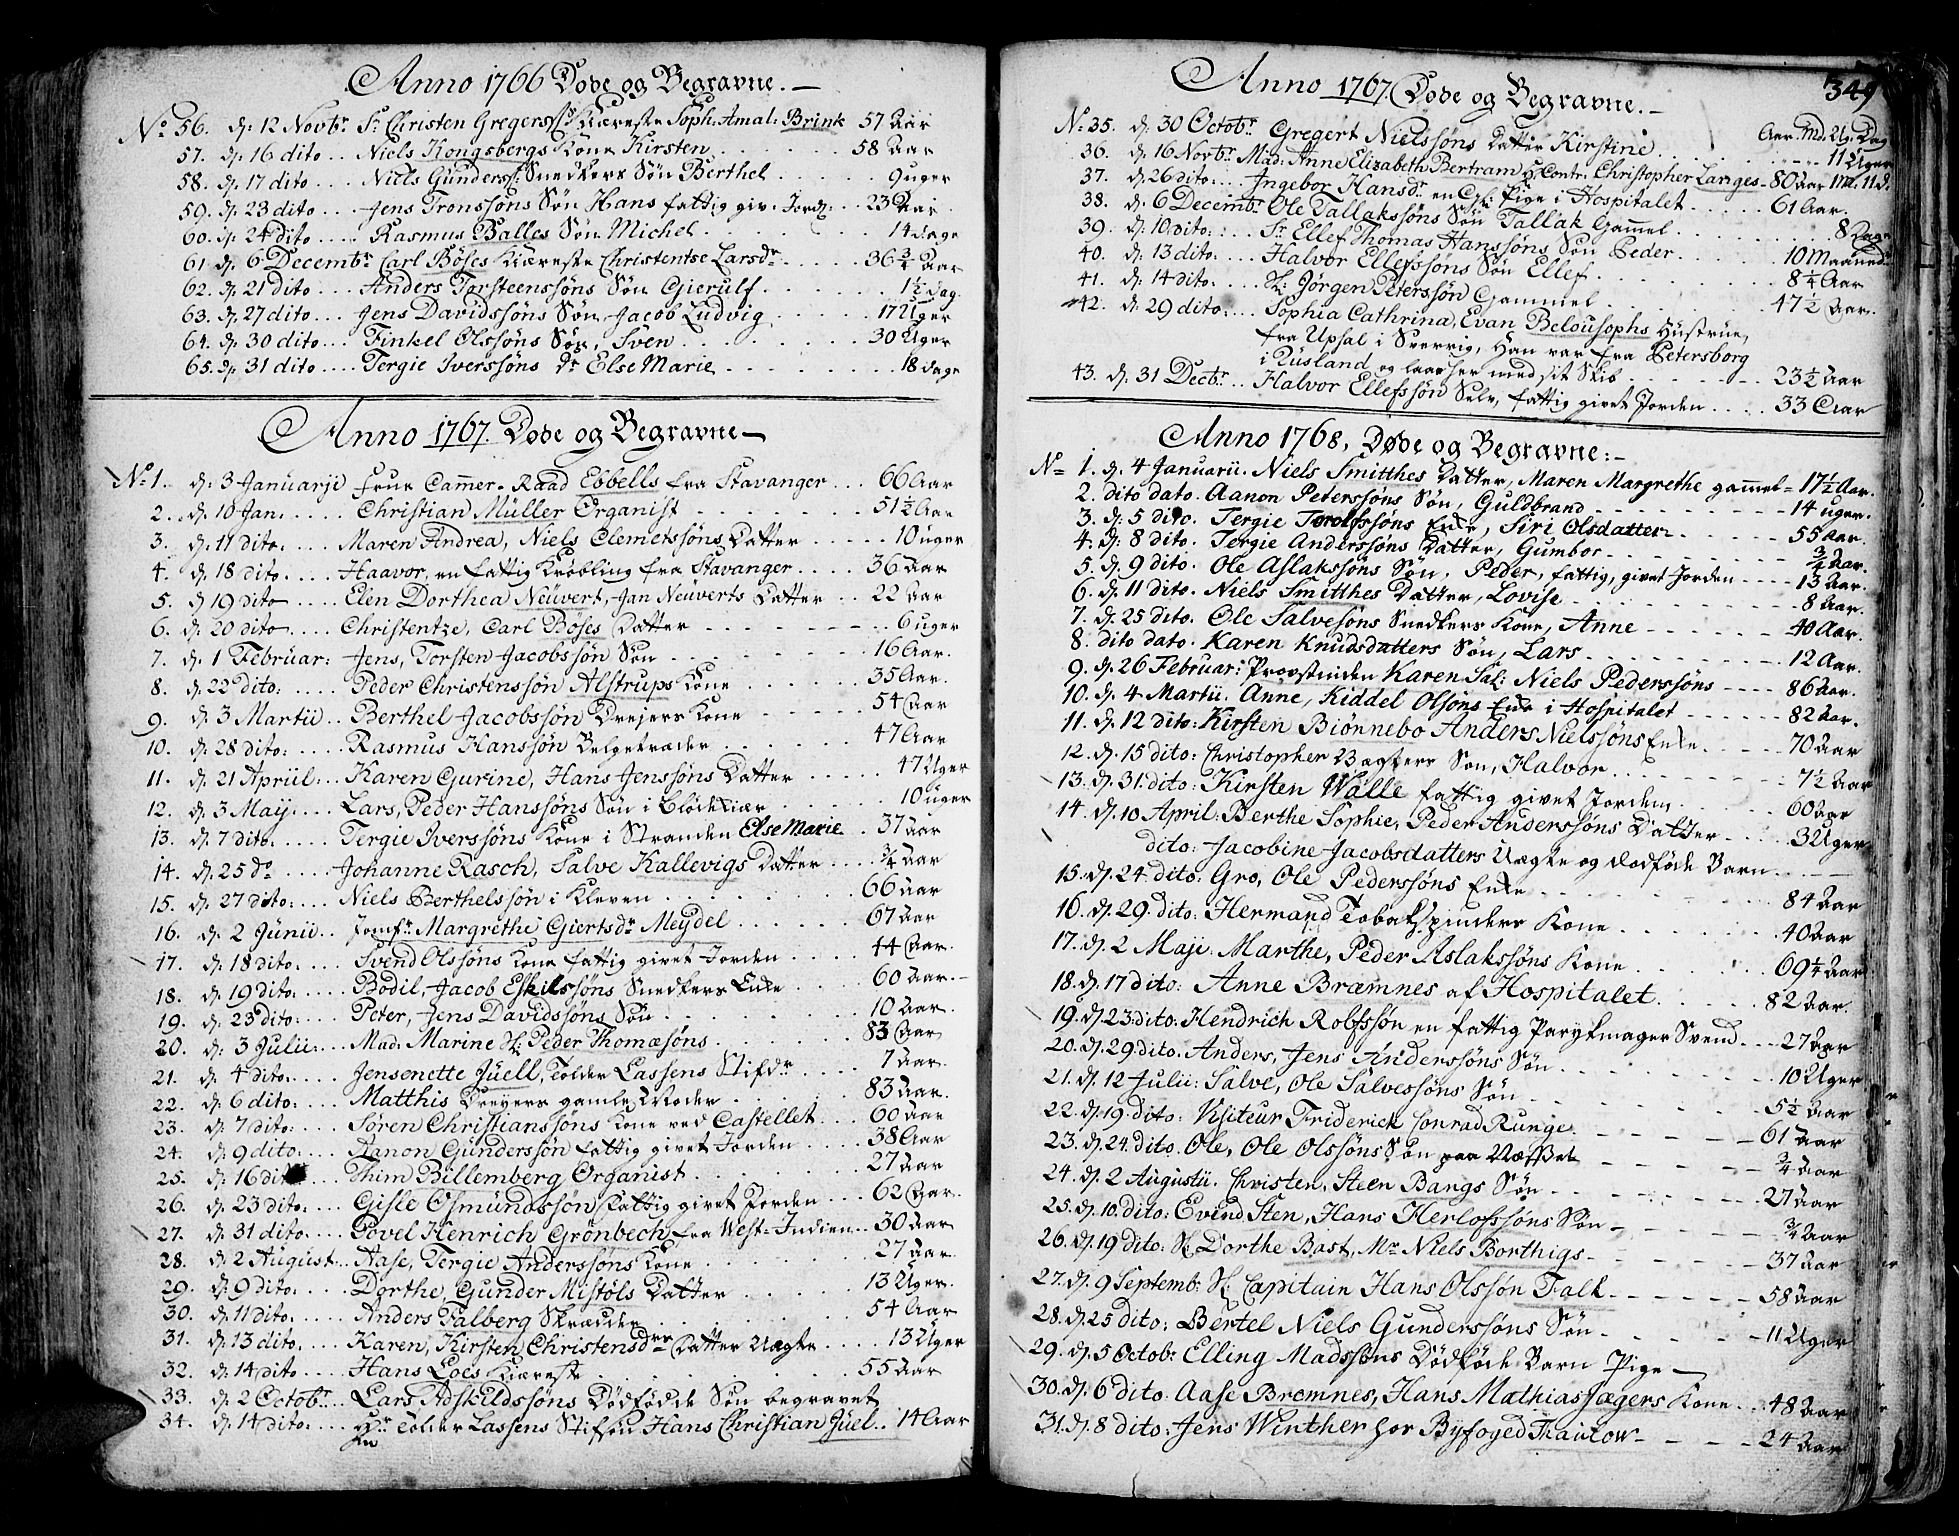 Anno 1766 Døde og Begravne.
No 56. d: 12 Novbr Sr Christen Gregerss: Kiæreste Soph: Amal: Brink 57 Aar
57. d: 16 dito... Niels Kongsbergs Kone Kirsten 58 Aar
58. d: 17 dito.... Niels Gunderss: Snedkers Søn Berthel 9 uger
59. d: 23 dito.... Jens Tronssøns Søn Hans fattig giv: Jord: 23 Aar
60. d: 24 dito.... Rasmus Balles Søn Michel 14 dage
61 d: 6 Decembr Carl Böses Kiæreste Christentse Larsdr 36 3/4 Aar
62. d: 21 dito.... Anders Torsteenssøns Søn Gierulf 1 1/2 dag.
63. d: 27 dito.... Jens Davidssøns Søn Jacob Ludvig 17 Uger
64. d: 30 dito... Finkel Olssøns Søn, Sven 30 Uger
65. d: 31 dito... Tergie Iverssøns Dr Else Marie 18 dage
Anno 1767. Døde og Begravne
No 1. d: 3 Januarii Frue Cammer-Raad Ebbells fra Stavanger... 66 Aar
2. d: 10 Jan:.... Christian Müller Organist 51 1/2 Aar
3. d: 11 dito.... Maren Andrea, Niels Clemetssøns Datter 10 uger
4. d: 18 dito.... Haavor, en fattig Krøbling fra Stavanger 36 Aar
5. d: 19 dito Elen Dorthea Neuvert, Jan Neuverts Datter 22 Aar
6. d: 20 dito.... Christentze, Carl Böses Datter 6 uger
7. d: 1 Februar: Jens, Torsten Jacobssøn Søn 16 Aar.
8. d: 22 dito:.... Peder Christenssøn Alstrups Kone 35 Aar.
9. d: 3 Martii.. Berthel Jacobssøn Drejers Kone 54 Aar
10. d: 28 dito:.... Rasmus Hanssøn Belgetræder 47 Aar
11. d: 21 Apriil:.. Karen Gurine, Hans Jenssøns Datter 47 Uger
12. d: 3 Maij:... Lars, Peder Hanssøns Søn i Blødekiær 10 uger
13. d: 7 dito.... Tergie Iverssøns Kone i Stranden Else Marie 37 aar
14. d: 25 do .... Johanne Rasch, Salve Kallevigs Datter 3/4 Aar
15. d: 27 dito:... Niels Berthelssøn i Kleven 66 Aar
16. d: 2 Junii.. Jomfr Margrethe Giertsdr Meydel 67 Aar
17. d: 18 dito:.... Svend Olssøns Kone fattig givet Jorden 44 Aar.
18. d: 19 dito:.... Bodil, Jacob Eskilssøns Snedkers Enke 60 Aar.
19. d: 23 dito:.... Peter, Jens Davidssøns Søn 10 Aar.
20. d: 3 Julii:... Mad: Marine Sl: Peder Thomæsøns 83 Aar
21. d: 4 dito:.... Jensenette Jüell, Tolder Lassens Stifdr 7 Aar.
22. d: 6 dito:.... Matthis Drejers gamle Moder 83 Aar
23. d: 7 dito:.... Søren Christianssøns Kone ved Castellet 60 Aar
24. d: 9 dito:.... Aanon Gunderssøn fattig givet Jorden 38 Aar
25. d: 16 dito Thim Billemberg Organist 27 Aar
26. d: 23 dito:... Gisle Osmundssøn fattig givet Jorden 62 Aar.
27. d: 31 dito:... Povel Henrich Grønbech fra West-Indien 30 Aar
28. d: 2 August.. Aase, Tergie Anderssøns Kone 27 Aar
29. d: 9 dito:.... Dorthe, Gunder Mistøls Datter 13 Uger.
30. d: 11 dito:.... Anders Falberg Skrædder 54 Aar
31. d: 13 dito:... Karen, Kirsten Christensdrs Datter Uægte 13 Uger
32. d: 14 dito... Hans Loes Kiæreste 55 Aar
33. d: 2 Octobr.. Lars Adskildssøns Dödfödde Søn begravet
34. d: 14 dito:... Hr Tolder Lassens Stifsøn Hans Christian Jüel.. 14 Aar
349
Anno 1767 Døde og Begravne.
Aar Md. Ug. Dag
No 35. d: 30 Octobr: Gregert Nielssøns Datter Kirstine 11 Uger
36. d: 16 Novbr Mad: Anne Elizabeth Bertram Hr Contr: Christopher Langes 80 aar 1 M. 11 d.
37. d: 26 dito:... Ingebor Hansdr en Gl: Pige i Hospitalet 61 Aar.
38. d: 6 Decembr Ole Tallakssøns Søn Tallak Gammel 8 Dage
39. d: 10 dito:... Sr Ellef Thomas Hanssøns Søn Peder 10 Maaned
40. d: 13 dito:.. Halvor Ellefssøns Søn Ellef 8 1/4 Aar
41. d: 14 dito:.. Sl: Jørgen Peterssøn Gammel 47 1/2 Aar.
42. d: 29 dito:... Sophia Cathrina, Evan Belousophs Hustrue,
fra Upsal i Sverrig, Han var fra Petersborg
i Rusland og laae her med sit Skib 23 1/2 Aar
43. d: 31 Decbr.. Halvor Ellefssøn Selv, fattig givet Jorden 33 Aar
Anno 1768, Døde og Begravne:
No 1. d: 4 Januarii. Niels Smitthes Datter, Maren Margrethe gammel 17 1/2 Aar.
2. dito dato. Aanon Peterssøns Søn, Guldbrand 14 uger.
3. d: 5 dito. Tergie Torolfssøns Enke, Siri Olsdatter 55 Aar.
4. d: 8 dito. Tergie Anderssøns Datter, Gumbor 3/4 Aar.
5. d: 9 dito. Ole Aslakssøns Søn, Peder, fattig, givet Jorden 13 Aar.
6. d: 11 dito. Niels Smitthes Datter, Lovise 8 Aar.
7. d: 25 dito. Ole Salvesøns Snedkers Kone, Anne 40 Aar.
8. dito dato. Karen Knudsdatters Søn, Lars 12 Aar.
9. d: 26 Februar: Provstinden Karen Sal: Niels Pederssøns 86 aar.
10. d: 4 Martii. Anne, Kiddel Olsøns Enke i Hospitalet 82 Aar.
11. d: 12 dito: Kirsten Biønnebo Anders Nielssøns Enke 70 Aar
12. d: 15 dito: Christopher Bagers Søn, Halvor 7 1/2 Aar
13. d: 31. dito: Kirsten Walle fattig givet Jorden 60 Aar
14. d: 10 April: Berthe Sophie, Peder Anderssøns Datter 3 Uger
dito: Jacobine Jacobsdatters Uægte og dødføde Barn
15. d: 24. dito: Gro, Ole Pederssøns Enke 84 Aar
16. d: 29. dito: Hermand Tobakspinders Kone 40 Aar
17. d: 2 Maji: Marthe, Peder Aslakssøns Kone 69 1/4 Aar
18. d: 17 dito: Anne Bræmnes af Hospitalet 82 Aar
19. d: 23. dito: Hendrich Rolfssøn en fattig Parykmager Svend 27 Aar
20. d: 29. dito: Anders, Jens Anderssøns Søn 10 Uger
21. d: 12 Julii: Salve, Ole Salvessøns Søn 5 1/2 Aar
22. d: 19. dito: Visiteur Friderich Conrad Runge 61 Aar
23. d: 24. dito. Ole, Ole Olssøns Søn paa Næsset 3/4 Aar
24. d: 2 Augustii. Christen, Steen Bangs Søn 27 Aar
25. d: 10. dito: Evend Sten, Hans Herlofssøns Søn 3/4 Aar
26. d: 19 dito: Sl: Dorthe Bast, Mr Niels Borthigs 37 Aar
27. d: 9 Septemb: Sl: Capitain Hans Olssøn Falk 58 Aar
28. d: 25 dito: Bertel Niels Gunderssøns Søn 11 Uger
29. d: 5 Octob: Elling Madssøns Dödföde Barn Pige
30. d: 6 dito. Aase Bromnes, Hans Mathiassægers Kone 48 Aar
31. d: 8 dito: Jens Winther hos Byfoged Traulow 24 Aar